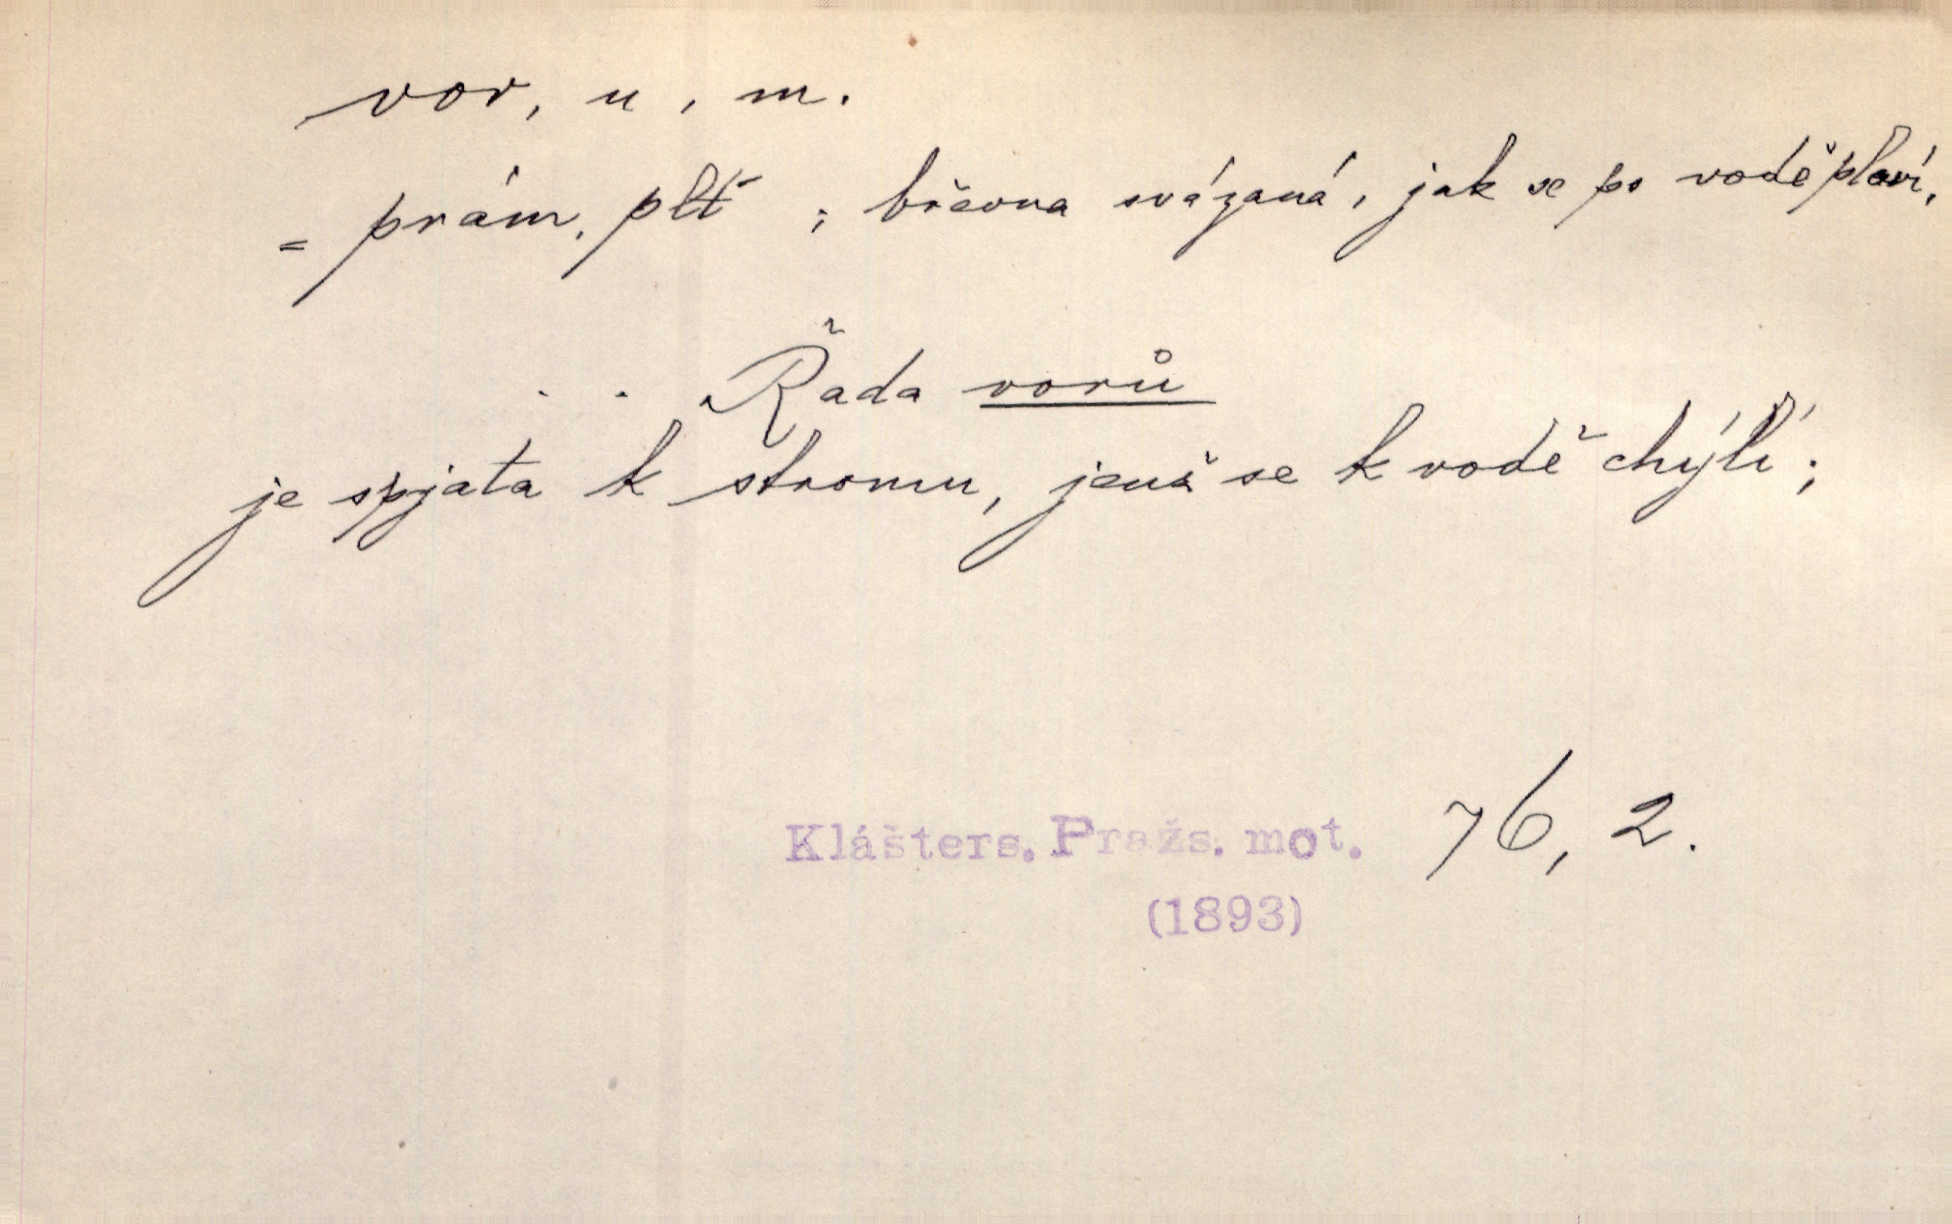 vor, u, m.
= prám, plť ; břevna svázaná, jak se po vodě plaví,
. . Řada vorů
je spjata k stromu, jenž se k vodě chýlí ;
Klášters. Pražs. mot. 76, 2.
(1893)